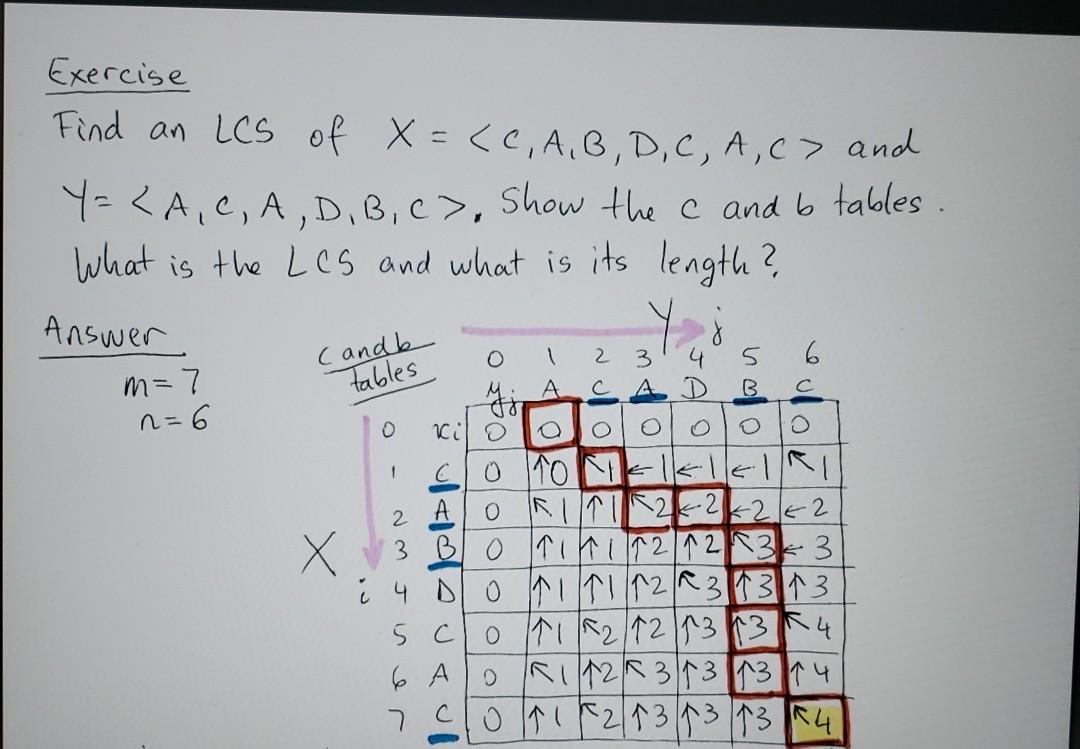 Exercise
Find an LCS of X = <C,A,B,D,C,A,C> and
Y= <A,C,A,D,B,C>. Show the c and b tables.
What is the LCS and what is its length?
Answer
m=7
n=6
c and b
tables
Y j
0 1 2 3 4 5 6
yj A C A D B C
0 xi 0 0 0 0 0 0 0
1 C 0 ↑0 ↖1 ←1 ←1 ←1 ↖1
2 A 0 ↖1 ↑1 ↖2 ←2 ←2 ←2
X
3 B 0 ↑1 ↑1 ↑2 ↑2 ↖3 ←3
i 4 D 0 ↑1 ↑1 ↑2 ↖3 ↑3 ↑3
5 C 0 ↑1 ↖2 ↑2 ↑3 ↑3 ↖4
6 A 0 ↖1 ↑2 ↖3 ↑3 ↑3 ↑4
7 C 0 ↑1 ↖2 ↑3 ↑3 ↑3 ↖4